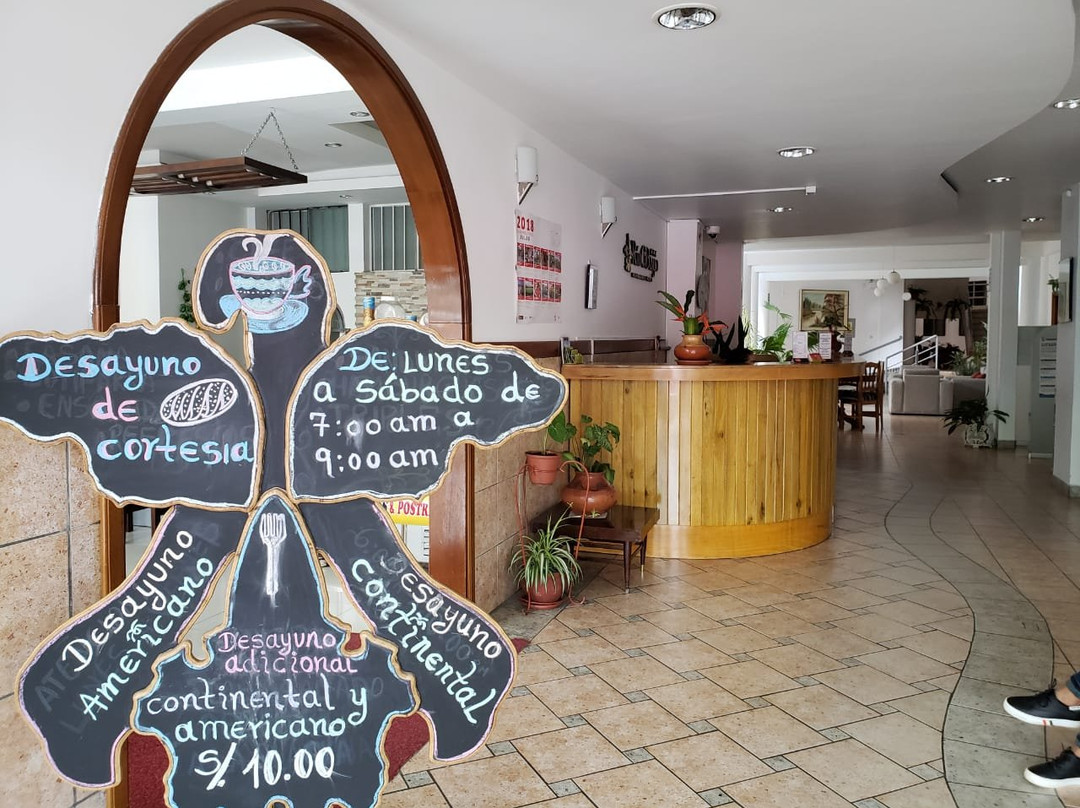 Desayuno
de
cortesia
De: Lunes
a sábado de
7:00 am a
9:00 am
Desayuno
Americano
Desayuno
continental
Desayuno
adicional
continental y
americano
S/. 10.00
2018
& POSTR